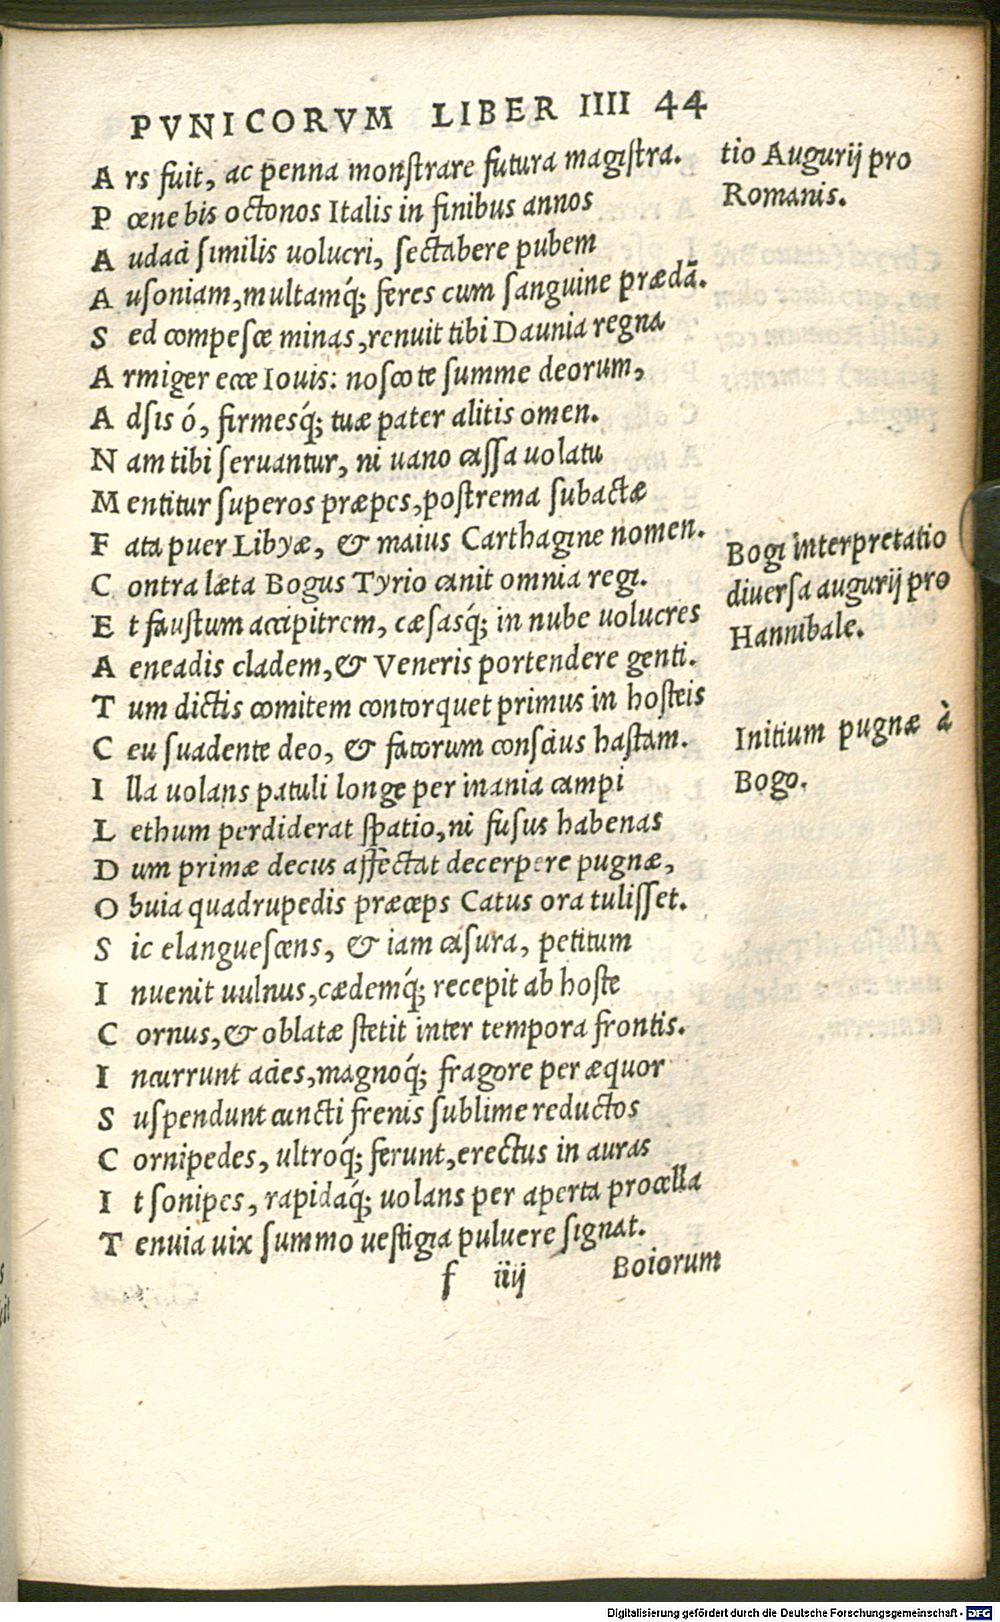 PVNICORVM LIBER IIII 44
A rs fuit, ac penna monſtrare futura magiſtra.
P œne bis octonos Italis in finibus annos
A udaci ſimilis uolucri, ſectabere pubem
A uſoniam, multamq́; feres cum ſanguine prædã.
S ed compeſce minas, renuit tibi Daunia regna
A rmiger ecce Iouis: noſco te ſumme deorum,
A dſis ó, firmesq́; tuæ pater alitis omen.
N am tibi ſeruantur, ni uano caſſa uolatu
M entitur ſuperos præpes, poſtrema ſubactæ
F ata puer Libyæ, & maius Carthagine nomen.
C ontra læta Bogus Tyrio canit omnia regi.
E t fauſtum accipitrem, cæſasq́; in nube uolucres
A eneadis cladem, & Veneris portendere genti.
T um dictis comitem contorquet primus in hoſteis
C eu ſuadente deo, & fatorum conſcius haſtam.
I lla uolans patuli longe per inania campi
L ethum perdiderat ſpatio, ni fuſus habenas
D um primæ decus affectat decerpere pugnæ,
O buia quadrupedis præceps Catus ora tuliſſet.
S ic elangueſcens, & iam caſura, petitum
I nuenit uulnus, cædemq́; recepit ab hoſte
C ornus, & oblatæ ſtetit inter tempora frontis.
I ncurrunt acies, magnoq́; fragore per æquor
S uſpendunt cuncti frenis ſublime reductos
C ornipedes, ultroq́; ferunt, erectus in auras
I t ſonipes, rapidaq́; uolans per aperta procella
T enuia uix ſummo ueſtigia puluere ſignat.
f iiij Boiorum
tio Augurij pro
Romanis.
Bogi interpretatio
diuerſa augurij pro
Hannibale.
Initium pugnæ à
Bogo.
Digitalisierung gefördert durch die Deutsche Forschungsgemeinschaft - DFG